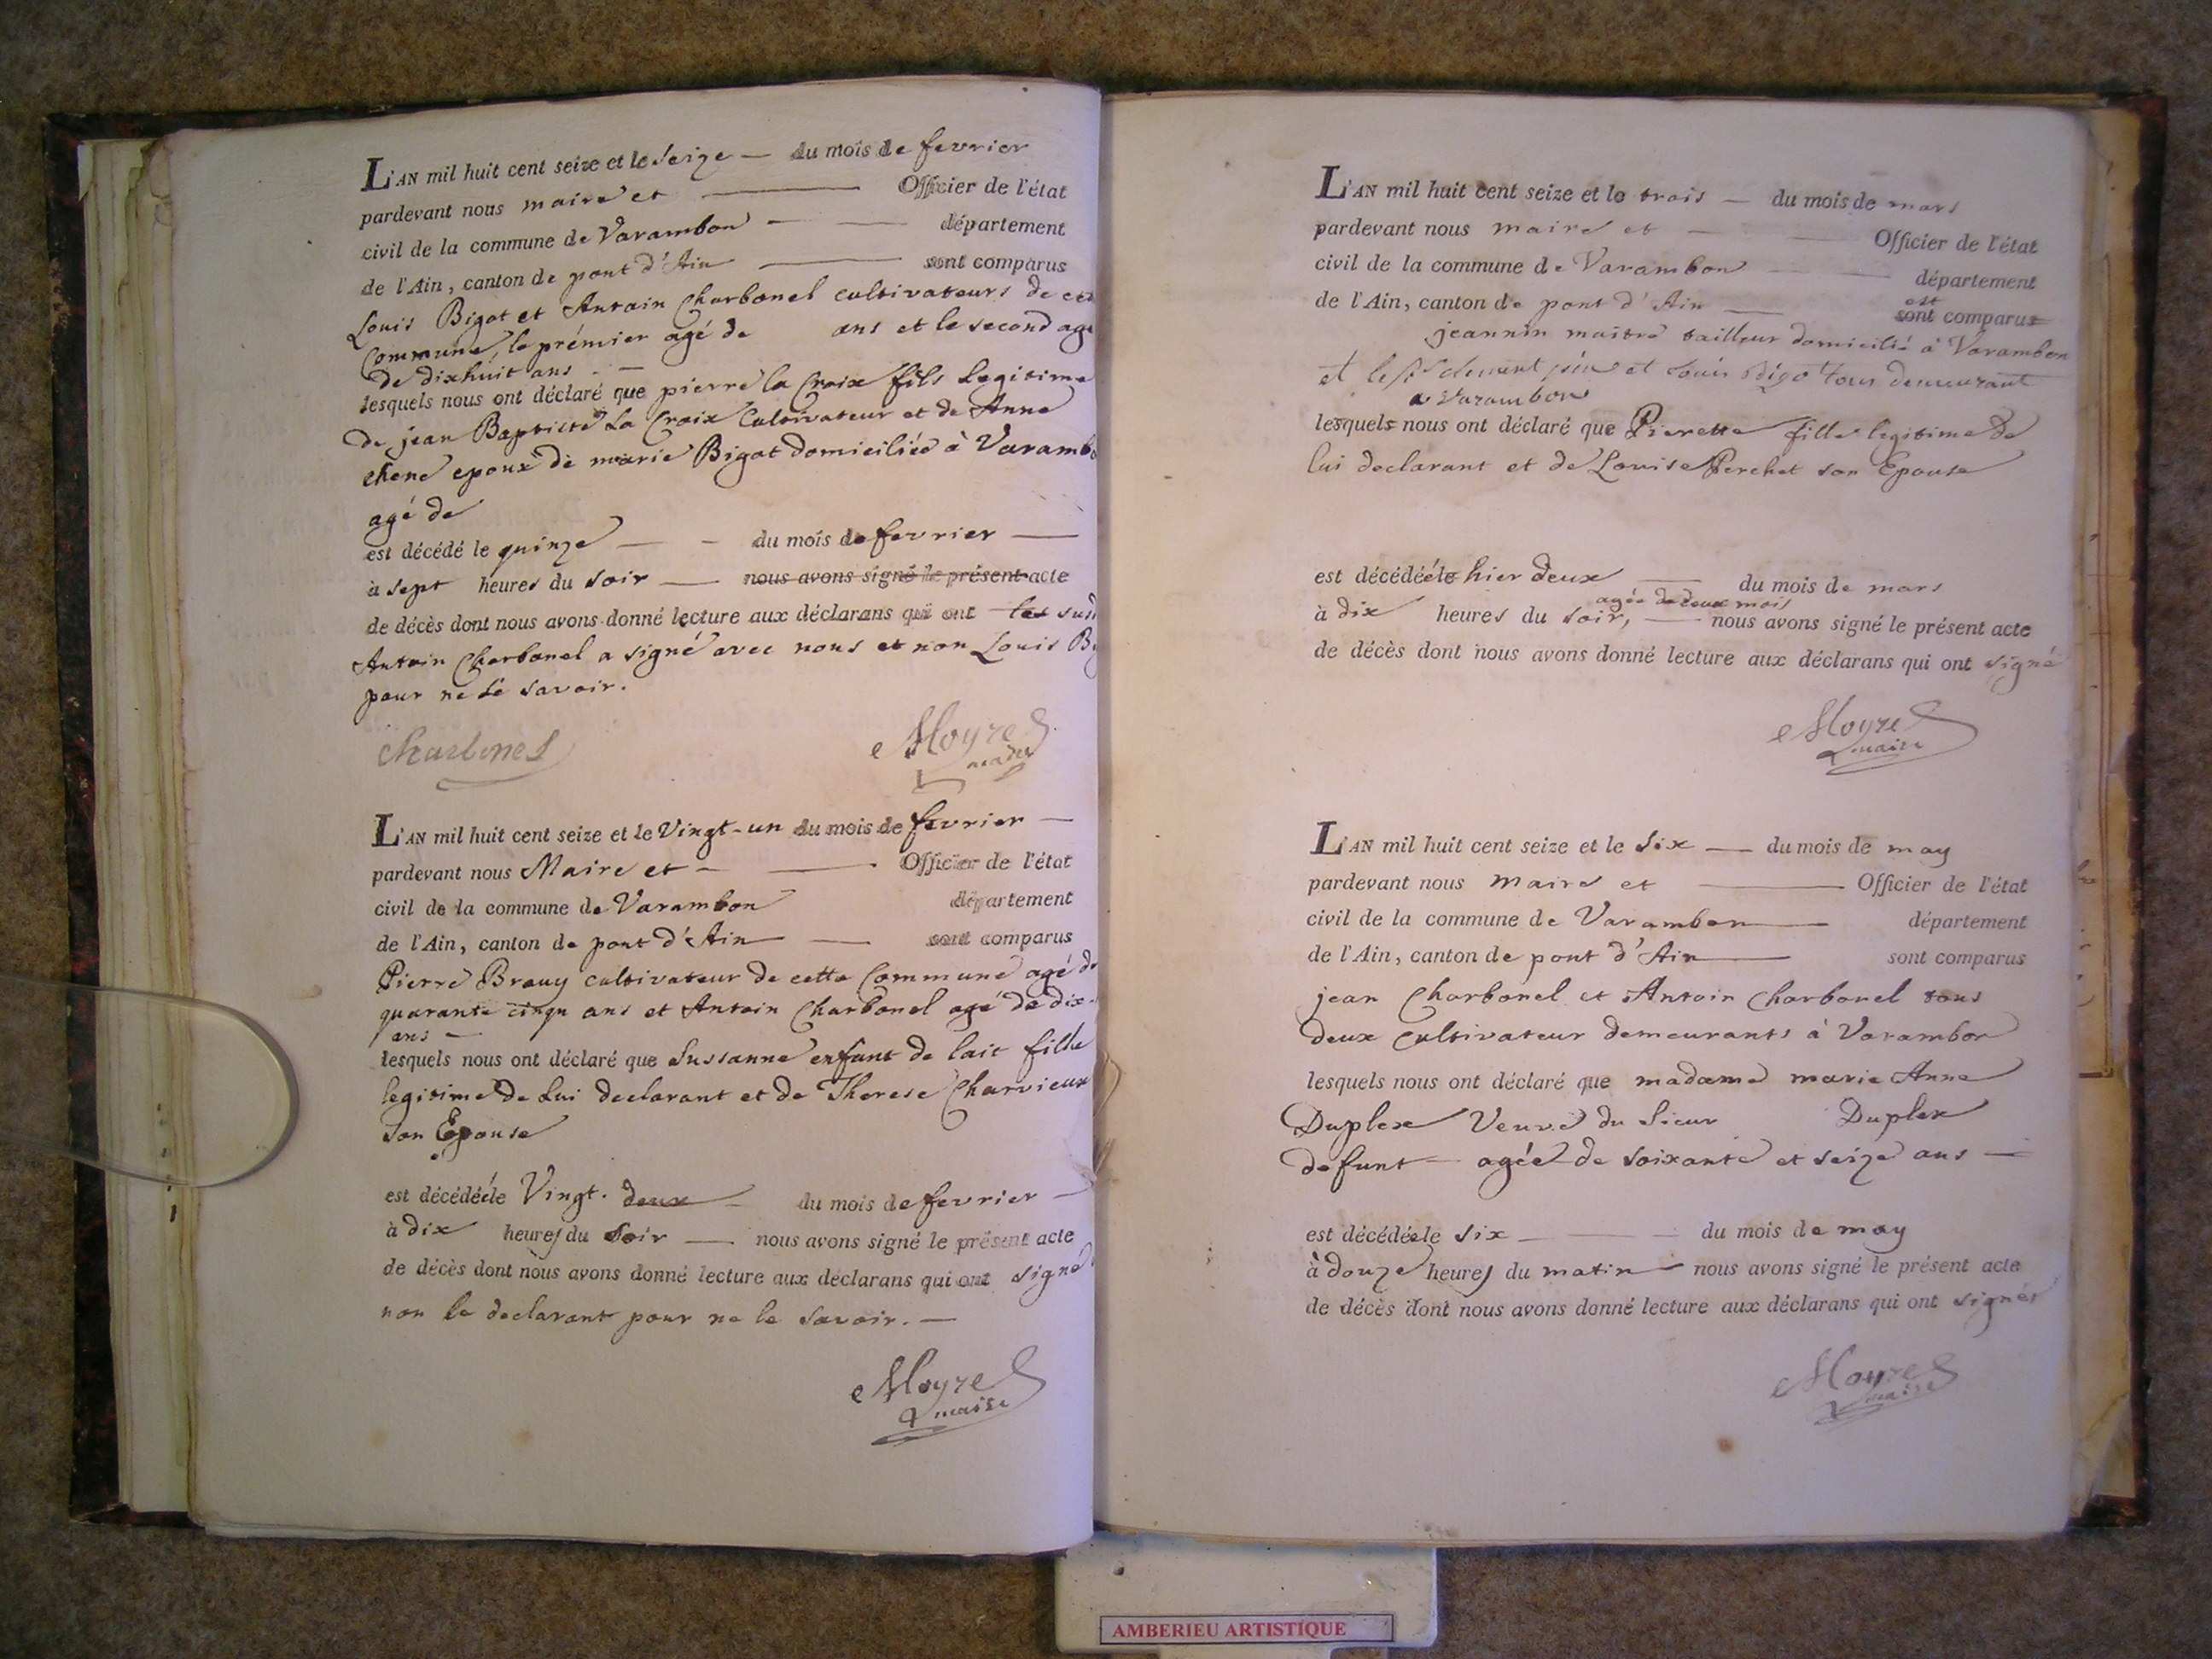 L'AN mil huit cent seize et le seize — du mois de fevrier
pardevant nous maire et — Officier de l'état
civil de la commune de Varambon — — département
de l'Ain, canton de pont d'Ain — sont comparus
Louis Bigot et Antoin Charbonel cultivateurs de
Commune, le prémier agé de ans et le second agé
de dixhuit ans - —
lesquels nous ont déclaré que pierre la Croix fils legitime
de jean Baptiste La Croix Cultivateur et de Anne
chene epoux de marie Bigot domiciliée à Varambo
agé de
est décédé le quinze — - du mois de fevrier —
à sept heures du soir — nous avons signé le présent acte
de décès dont nous avons donné lecture aux déclarans qui ont
Antoin Charbonel a signé avec nous et non Louis
pour ne le savoir.
Charbonel
Moyret
maire
L'AN mil huit cent seize et le Vingt-un du mois de fevrier —
pardevant nous Maire et - — Officier de l'état
civil de la commune de Varambon département
de l'Ain, canton de pont d'Ain — sont comparus
Pierre Brauy cultivateur de cette Commune agé de
quarante cinqu ans et Antoin Charbonel agé de dix
ans —
lesquels nous ont déclaré que Sussanne enfant de lait fille
legitime de Lui declarant et de Therese Charvieux
son Epouse
est décédéele Vingt. deux - du mois de fevrier —
à dix heures du soir — nous avons signé le présent acte
de décès dont nous avons donné lecture aux déclarans qui ont signé
non le declarant pour ne le savoir. —
Moyret
maire
L'AN mil huit cent seize et le trois — du mois de mars
pardevant nous maire et — Officier de l'état
civil de la commune de Varambon — département
est
de l'Ain, canton de pont d'Ain — sont comparus
jeannin maitre tailleur domicilié à Varambon
et le Sr clement et Louis Bigo tous demeurant
a Varambon
lesquels nous ont déclaré que Pierette fille legitime de
lui declarant et de Louise Perchet son Epouse
est décédéele hier deux — du mois de mars
agée de deux mois
à dix heures du soir, — nous avons signé le présent acte
de décès dont nous avons donné lecture aux déclarans qui ont signé
Moyret
maire
L'AN mil huit cent seize et le Six — du mois de may
pardevant nous maire et — Officier de l'état
civil de la commune de Varambon — département
de l'Ain, canton de pont d'Ain — sont comparus
jean Charbonel et Antoin Charbonel tous
deux Cultivateur demeurants à Varambon
lesquels nous ont déclaré que madame marie Anne
Duplex Veuve du Sieur Duplex
defunt — agée de soixante et seize ans —
est décédéele six — du mois de may
à douze heures du matin — nous avons signé le présent acte
de décès dont nous avons donné lecture aux déclarans qui ont signés
Moyret
maire
AMBERIEU ARTISTIQUE